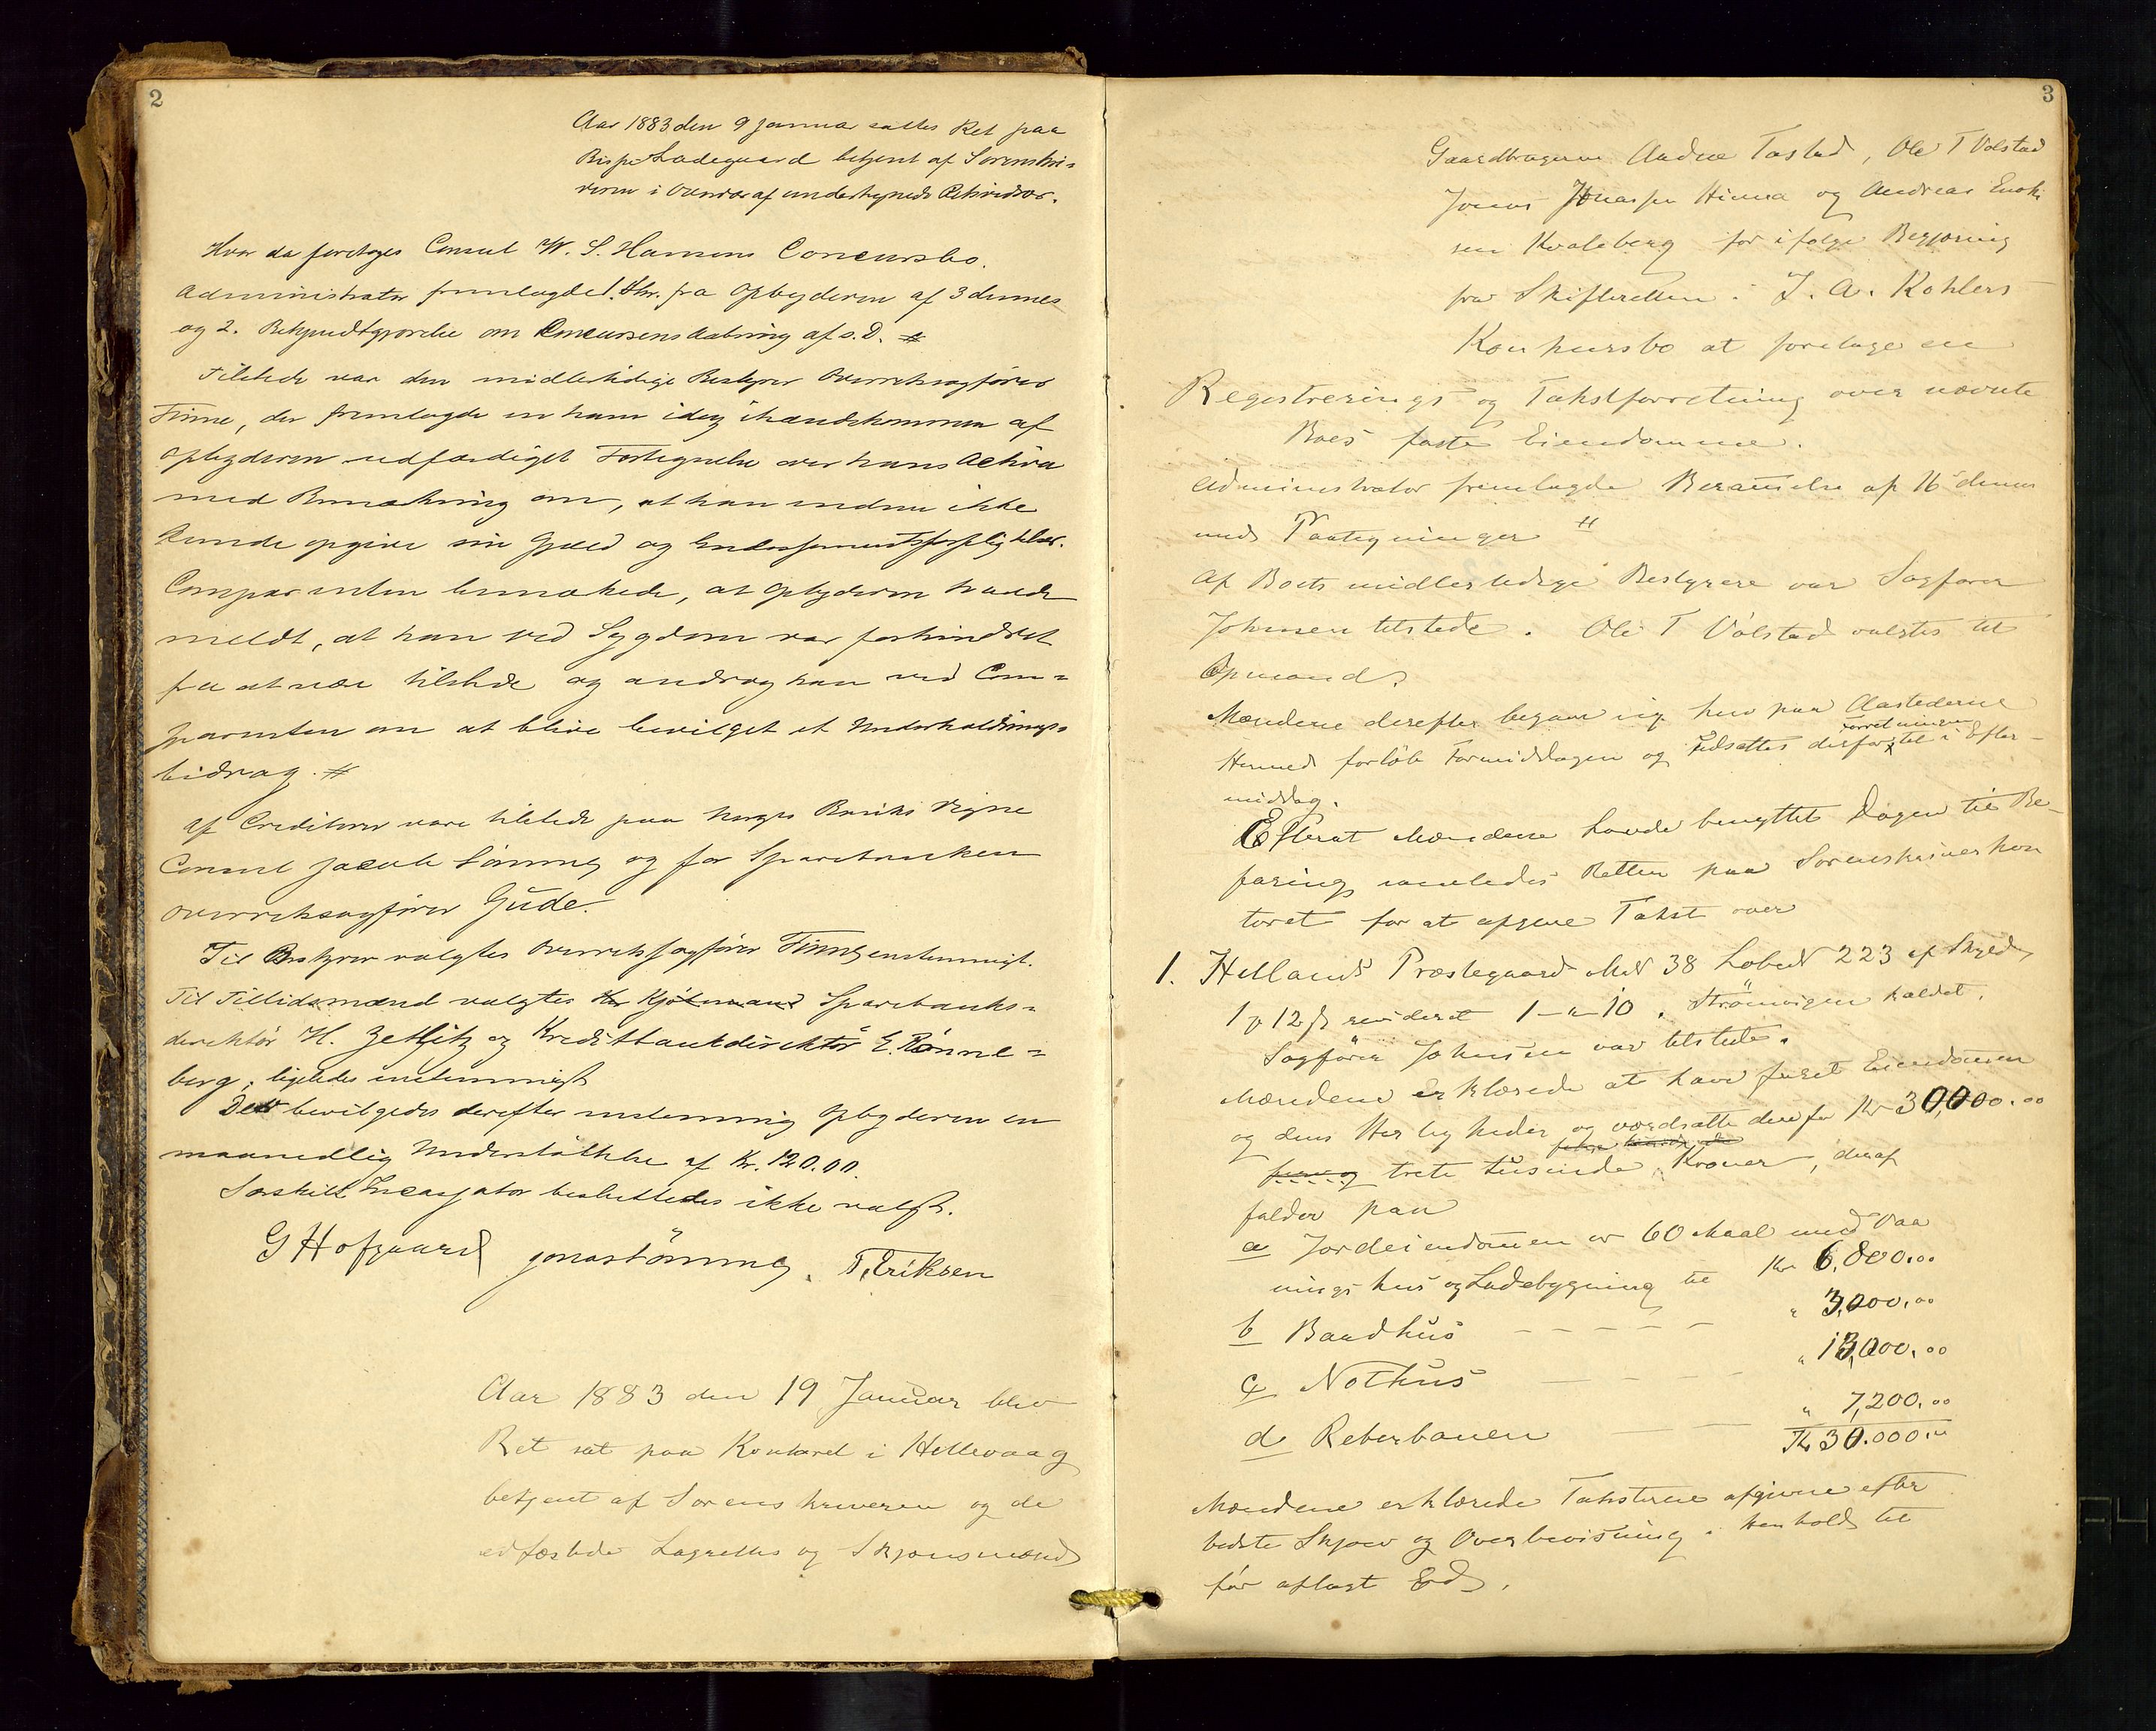 2
Aar 1883 den 9 Januar sattes Ret paa
Bispeladegaard betjent af Sorenskri=
veren i Overvær af undertegnede Retsvidner.
Hvor da foretoges Consul W. S. Hansens Concursbo.
Administrator fremlagde 1. Skr. fra Opbyderen af 3 dennes
og 2. Bekjendtgjørelse om Concursens Aabning af s. D. #
Tilstede var den midlertidige Bestyrer Overretssagfører
Finne, der fremlagde en ham idag ihændekommen af
Opbyderen udfærdiget Fortegnelse over hans Activa
med Bemærkning om, at han endnu ikke
kunde opgive sin Gjæld og Endossementsforpligtelser.
Comparenten bemærkede, at Opbyderen havde
meldt, at han ved Sygdom var forhindret
fra at være tilstede og androg han ved Com=
parenten om at blive bevilget et Underholdnings
bidrag. #
Af Creditorer vare tilstede paa Norges Banks Vegne
Consul Jacob Sømme og for Sparebanken
Overretssagfører Gude.
Til Bestyrer valgtes Overretssagfører Finne enstemmigt.
Til Tillidsmænd valgtes Sparebanks=
direktör H. Zetlitz og Kreditbankdirektör E. Rönne=
berg, ligeledes enstemmigt
Der bevilgedes derefter enstemmig Opbyderen en
maanedlig Understöttelse af Kr. 120.00.
Særskilt Incassator besluttedes ikke valgt.
G Hofgaard Jonas Sömme. T. Eriksen
Aar 1883 den 19 Januar blev
Ret sat paa Kontoret i Hillevaag
betjent af Sorenskriveren og de
edfæstede Lagrettes og Skjønsmænd
3
Gaardbrugerne Andrea Tastad, Ole T Volstad
Jonas Jonassen Hinna og Andreas Enok
sen Kvaleberg for ifølge Begjæring
fra Skifteretten i J. A. Kohlers
Konkursbo at foretage en
Registrerings og Takstforretning over nævnte
Boes faste Eiendomme.
Administrator fremlagde Berammelse af 16 dennes
med Paategninger #
Af Boets midlertidige Bestyrere var Sagfører
Johnsen tilstede. Ole T Volstad valgtes til
Opmand.
Mændene derefter begave sig hen paa Aastederne
Forretningen
Hermed forløb Formiddagen og udsattes derfor til i Efter-
middag.
Efterat Mændene havde benyttet Dagen til Be-
faring samledes Retten paa Sorenskriverkon
toret for at afgive Takst over
1. Hillands Præstegaard MN 38 LøbeN 223 af Skyld
1 p 12 ß revideret 1 - " - 10, Strömvigen kaldet.
Sagfører Johnsen var tilstede.
Mændene erklærede at have seet Eiendommen
og dens Herligheder og værdsatte den for Kr 30,000.00
treti tusinde Kroner, deraf
falder paa
a Jordeiendommen er 60 Maal med Vaa
ningshus og Ladebygning til Kr 6,800.00
b Baadhus - - - - - " 3,000.00
c Nothus - - - - " 13,000.00
d Reberbanen - - " 7,200.00
Kr 30.000.00
Mændene erklærede Taksterne afgivne efter
bedste Skjøn og Overbevisning i Henhold til
før aflagt Ed.